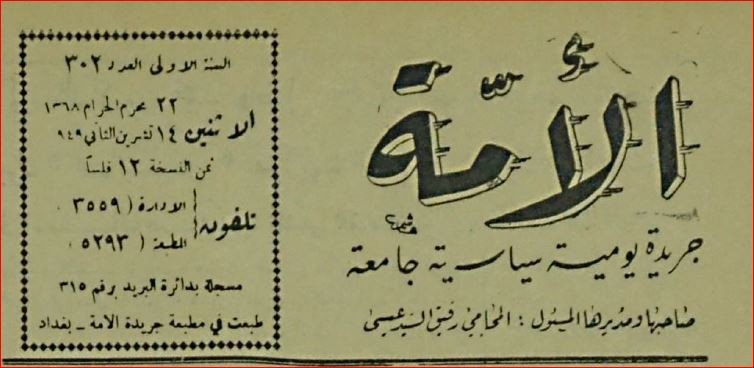 الأمّة
جريدة يومية سياسية جامعة
صاحبها ومديرها المسئول : المحامي رفيق السيد عيسى
السنة الاولى العدد ٣٠٢
٢٢ محرم الحرام ١٣٦٨
الاثنين ١٤ تشرين الثاني ٩٤٩
ثمن النسخة ١٢ فلساً
تلفون
الادارة ( ٣٥٥٩ .
المطبعة ( ٥٢٩٣ .
مسجلة بدائرة البريد برقم ٣١٥
طبعت في مطبعة جريدة الامة - بغداد